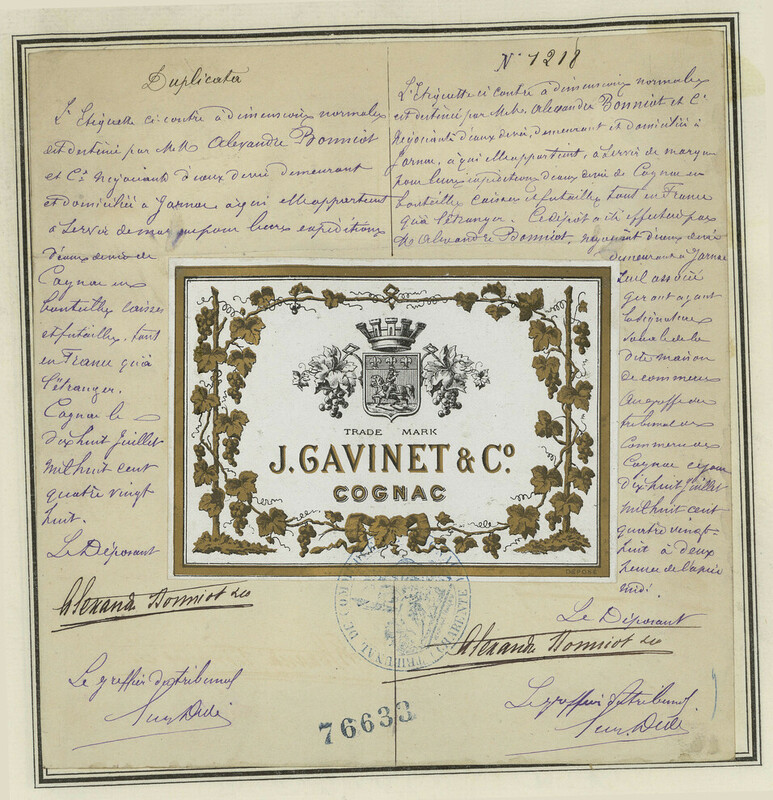 Duplicata
L'Etiquette ci contre à dimensions normales
est destinée par M.M. Alexandre Bonniot
et Cie Négociants d'eaux de vie demeurant
et domiciliés à Jarnac à qui elle appartient
à servir de marque pour leurs expéditions
d'eaux de vie de
Cognac en
bouteilles caisses
et futailles, tant
en France qu'à
l'étranger.
Cognac le
dix huit Juillet
mil huit cent
quatre vingt
huit.
Le Déposant
Alexandre Bonniot & Co
Le greffier du tribunal
N° 1218
L'Etiquette ci contre à dimensions normales
est destinée par M.M. Alexandre Bonniot et Cie
Négociants d'eaux de vie, demeurant et domiciliés à
Jarnac, à qui elle appartient, à servir de marque
pour leurs expéditions d'eaux de vie de Cognac en
bouteilles caisses et futailles tant en France
qu'à l'étranger. Ce dépôt a été effectué par
M. Alexandre Bonniot, négociant d'eaux de vie
demeurant à Jarnac
seul associé
gérant ayant
la signature
sociale de la
dite maison
de commerce
Au greffe du
tribunal de
Commerce de
Cognac ce jour
dix huit Juillet
mil huit cent
quatre vingt-
huit à deux
heures de l'après
midi.
Le Déposant
Alexandre Bonniot & Co
Le greffier du tribunal
TRADE MARK
J. GAVINET & Co
COGNAC
DÉPOSÉ
TRIBUNAL DE COMMERCE
CHARENTE
76633